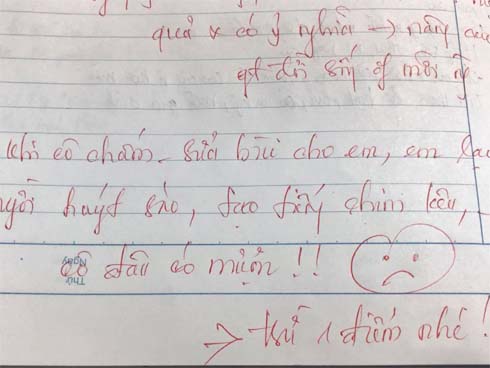 quả & có ý nghĩa → nâng
sống of mỗi
khi cô chấm - sửa bài cho em, em
ngồi huýt sáo, tạo tiếng chim kêu,
cô đâu có muốn !!
Thứ
Ngày
→ trừ 1 điểm nhé !